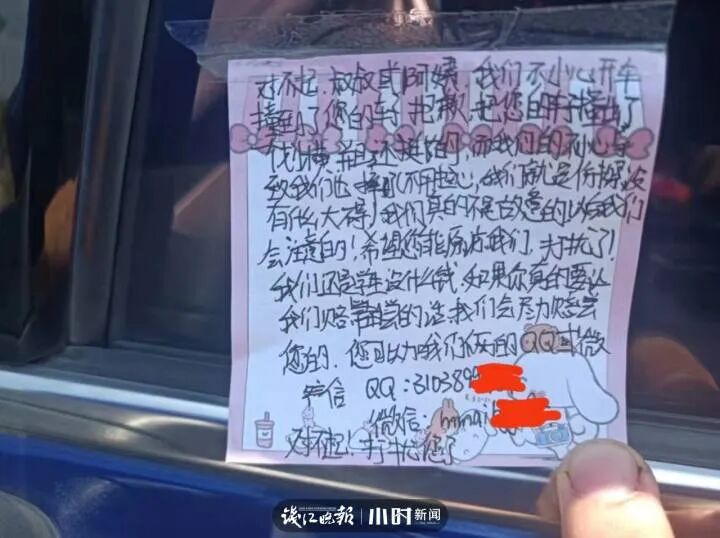 对不起,叔叔或阿姨,我们不小心开车
撞到了您的车了,抱歉,把您的车子撞出了
划横,并且还挺的,而我们的不小心导
致我们也摔不用担心,我们就是侧摔没
有什么大碍!我们真的不是故意的以后我们
会注意的!希望您能原谅我们,打扰了!
我们还是学生没什么钱,如果你真的要让
我们赔偿的话,我们会尽力赔尝
您的,您可以加我们的QQ或微
信 QQ:310389
微信:mmai
对不起!打扰您了
钱江晚报 小时新闻